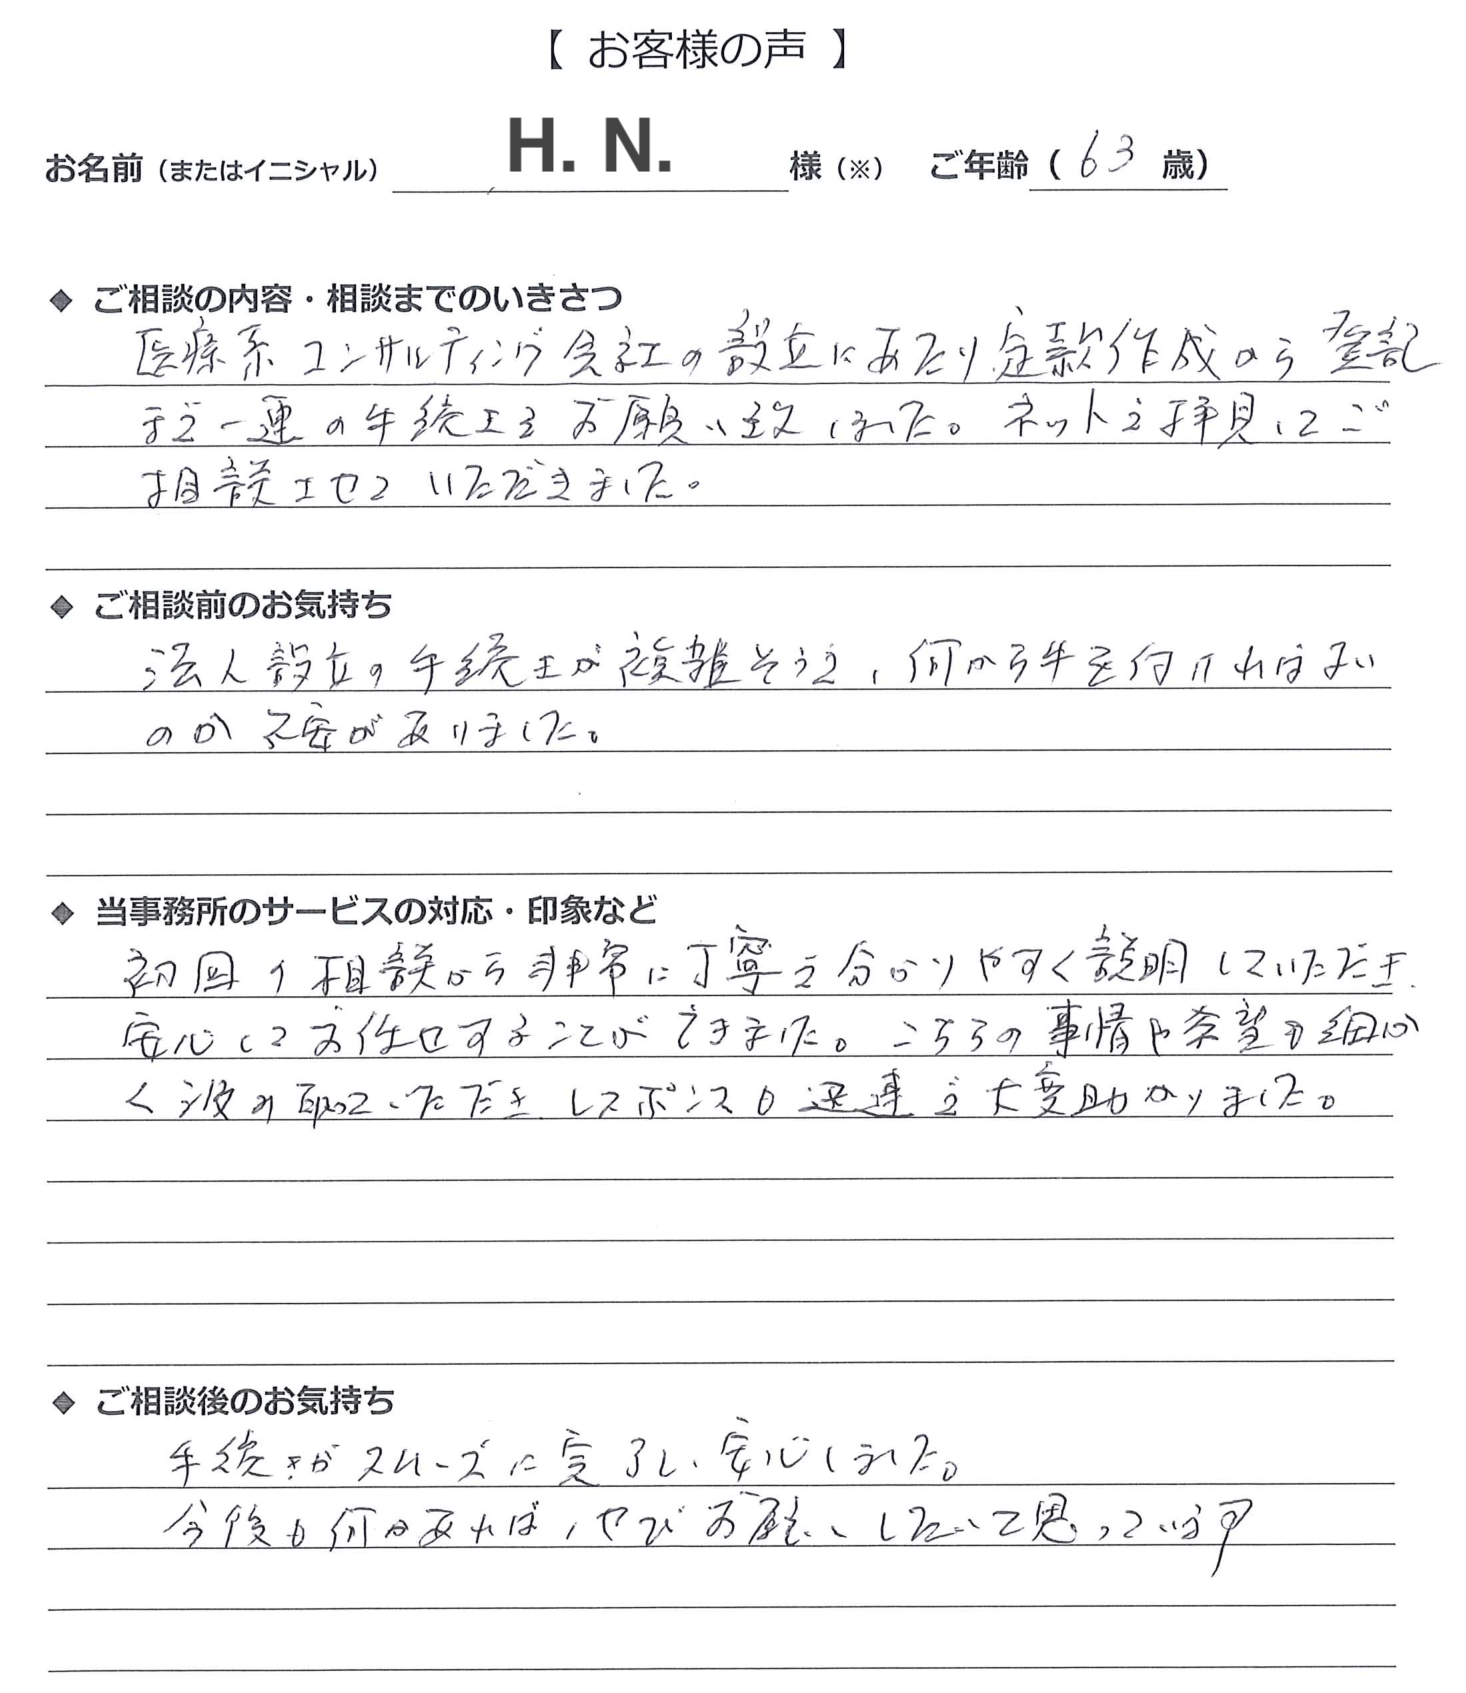 【 お客様の声 】
お名前（またはイニシャル） H. N. 様（※） ご年齢（ 63 歳）
◆ ご相談の内容・相談までのいきさつ
医療系コンサルティング会社の設立にあたり定款作成から登記
まで一連の手続きをお願い致しました。ネットで拝見してご
相談させていただきました。
◆ ご相談前のお気持ち
法人設立の手続きが複雑そうで、何から手を付ければよい
のか不安がありました。
◆ 当事務所のサービスの対応・印象など
初回の相談から非常に丁寧で分かりやすく説明していただき、
安心してお任せすることができました。こちらの事情や希望も細か
く汲み取っていただき、レスポンスも迅速で大変助かりました。
◆ ご相談後のお気持ち
手続きがスムーズに完了し、安心しました。
今後も何かあれば、ぜひお願いしたいと思っています